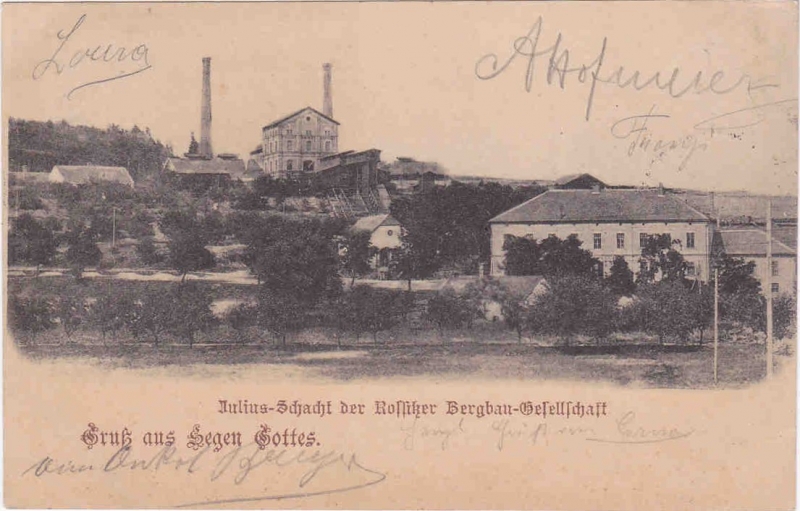 Loura
A Hofmeier
Julius-Schacht der Rossitzer Bergbau-Gesellschaft
Gruß aus Segen Gottes.
Gruß von
vom Onkel